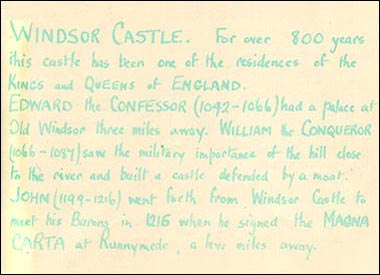 WINDSOR CASTLE. For over 800 years
this castle has been one of the residences of the
KINGS and QUEENS of ENGLAND.
EDWARD the CONFESSOR (1042-1066) had a palace at
Old Windsor three miles away. WILLIAM the CONQUEROR
(1066-1087) saw the military importance of the hill close
to the river and built a castle defended by a moat.
JOHN (1199-1216) went forth from Windsor Castle to
meet his Barons in 1216 when he signed the MAGNA
CARTA at Runnymede, a few miles away.